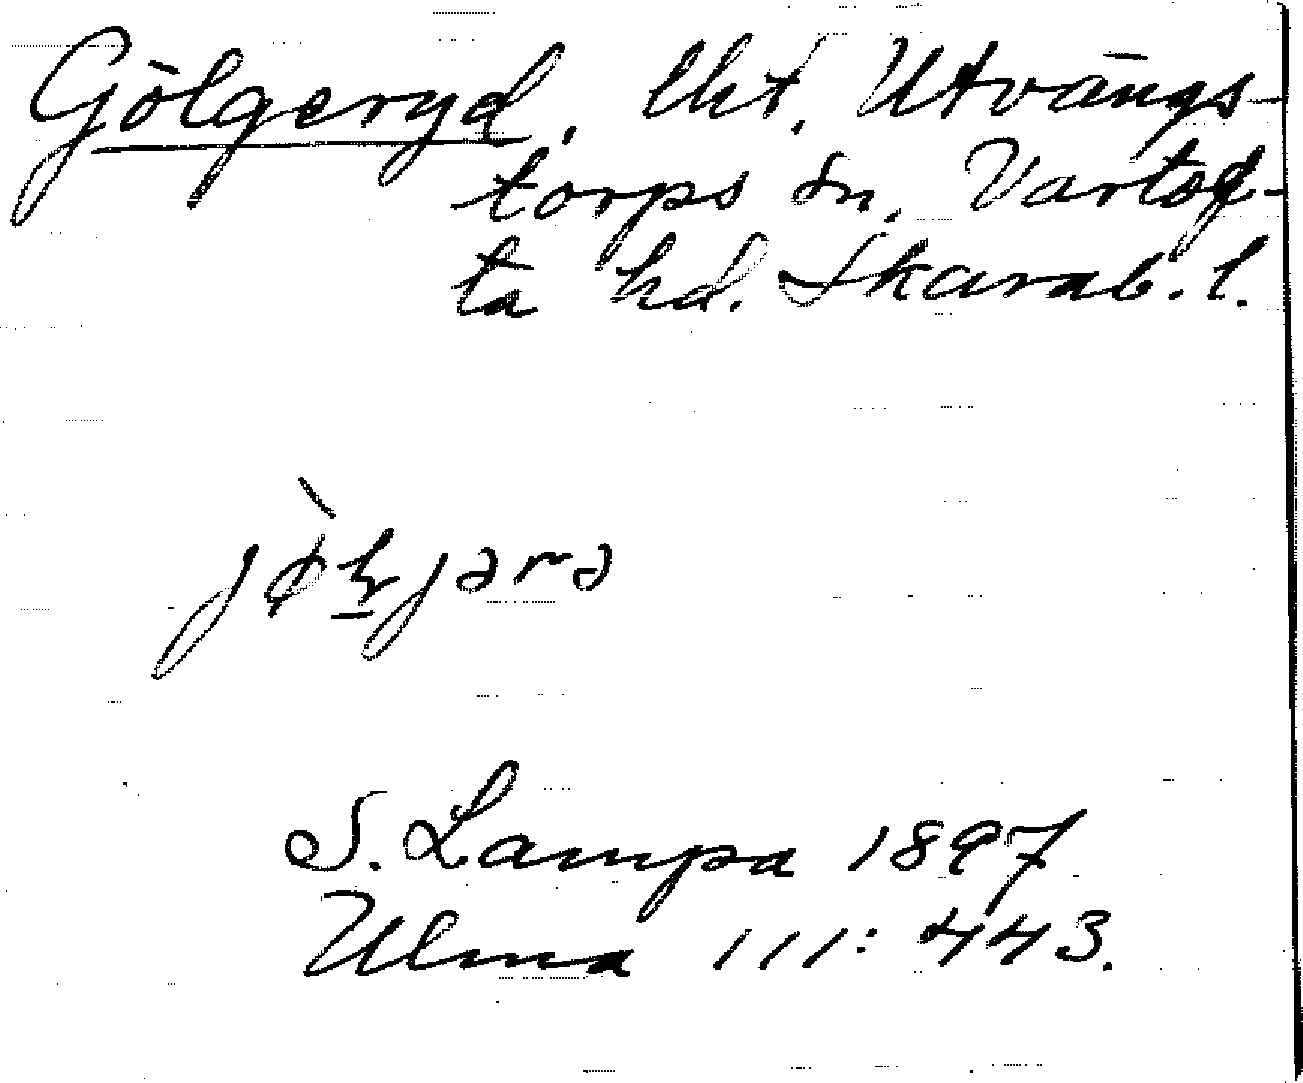 Gölgeryd, lht, Utvängs-
torps sn, Vartof-
ta hd. Skarab. l.
S. Lampa 1897
Ulma 111: 443.